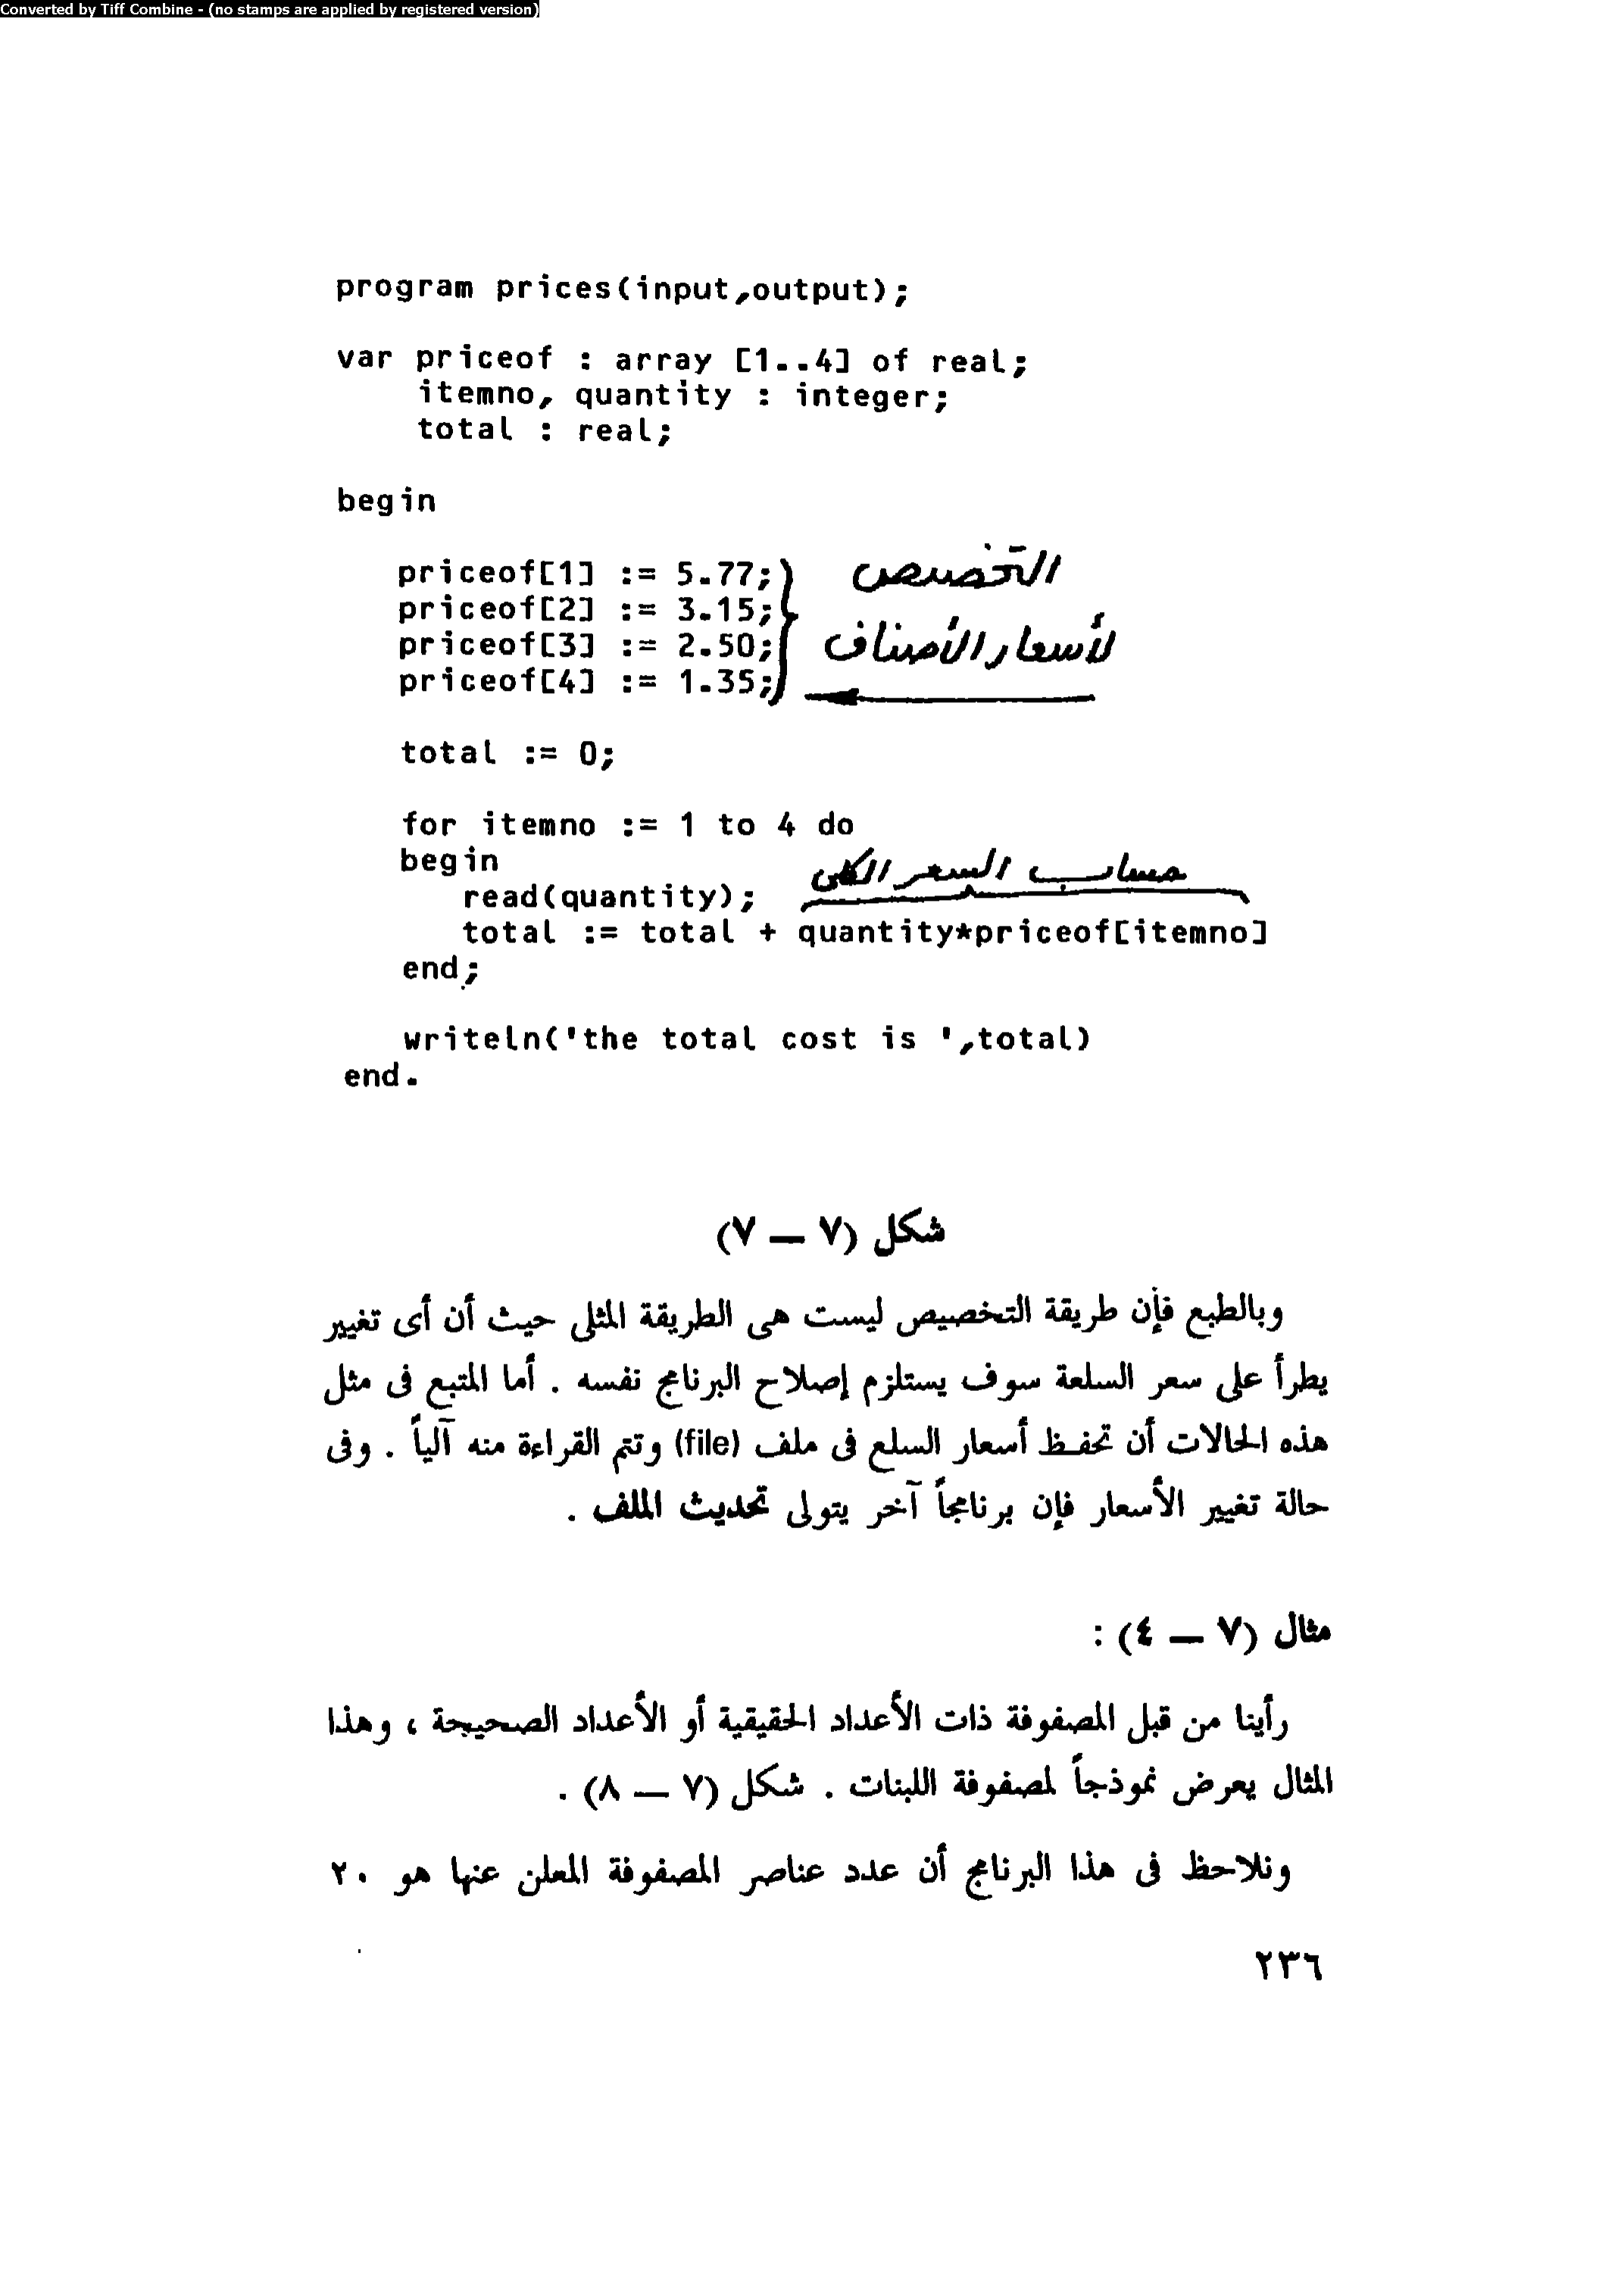 Converted by Tiff Combine - (no stamps are applied by registered version)
program prices(input,output);
var priceof : array [1..4] of real;
itemno, quantity : integer;
total : real;
begin
priceof[1] := 5.77;
priceof[2] := 3.15;
priceof[3] := 2.50;
priceof[4] := 1.35;
التخصيص
لأسعار الأصناف
total := 0;
for itemno := 1 to 4 do
begin
حساب السعر الكلى
read(quantity);
total := total + quantity*priceof[itemno]
end;
writeln('the total cost is ',total)
end.
شكل (٧ — ٧)
وبالطبع فإن طريقة التخصيص ليست هى الطريقة المثلى حيث أن أى تغيير
يطرأ على سعر السلعة سوف يستلزم إصلاح البرنامج نفسه . أما المتبع فى مثل
هذه الحالات أن تحفظ أسعار السلع فى ملف (file) وتتم القراءة منه آلياً . وفى
حالة تغيير الأسعار فإن برنامجاً آخر يتولى تحديث الملف .
مثال (٧ — ٤) :
رأينا من قبل المصفوفة ذات الأعداد الحقيقية أو الأعداد الصحيحة ، وهذا
المثال يعرض نموذجاً لمصفوفة اللبنات . شكل (٧ — ٨) .
ونلاحظ فى هذا البرنامج أن عدد عناصر المصفوفة المعلن عنها هو ٢٠
٢٣٦